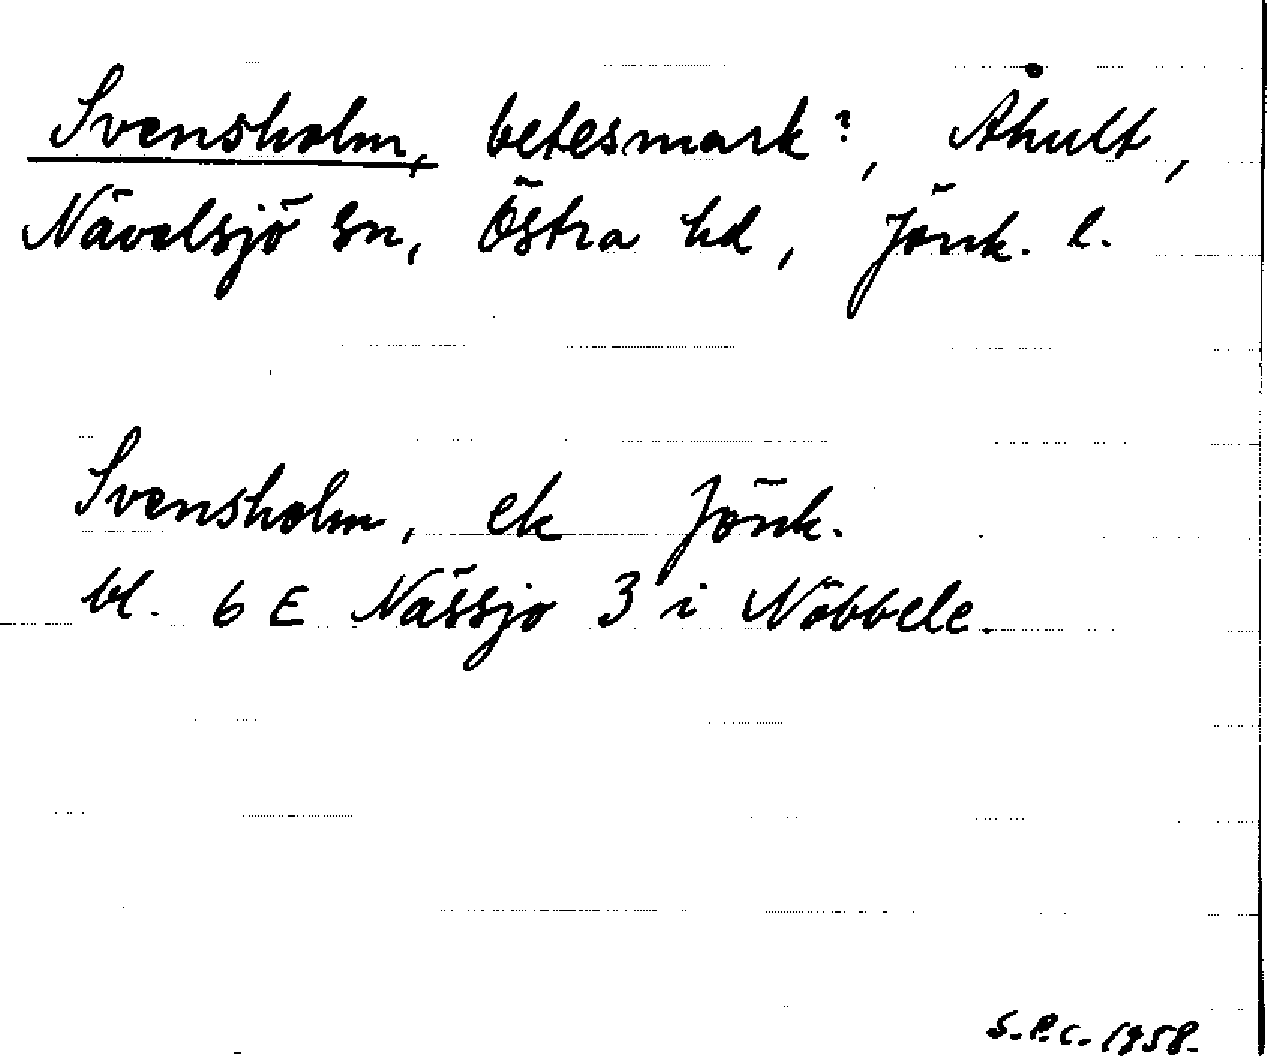 Svensholm, betesmark?, Åhult,
Nävelsjö sn, Östra hd, Jönk. l.
Svensholm, ek Jönk.
bl. 6 E Nässjö 3 i Nöbbele.
S.P.C. 1958.